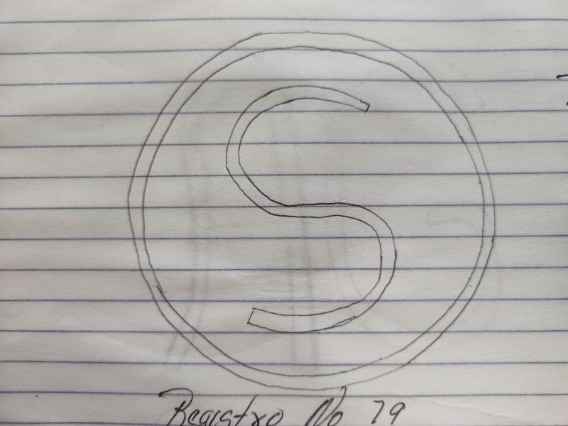 S
Registro No 79